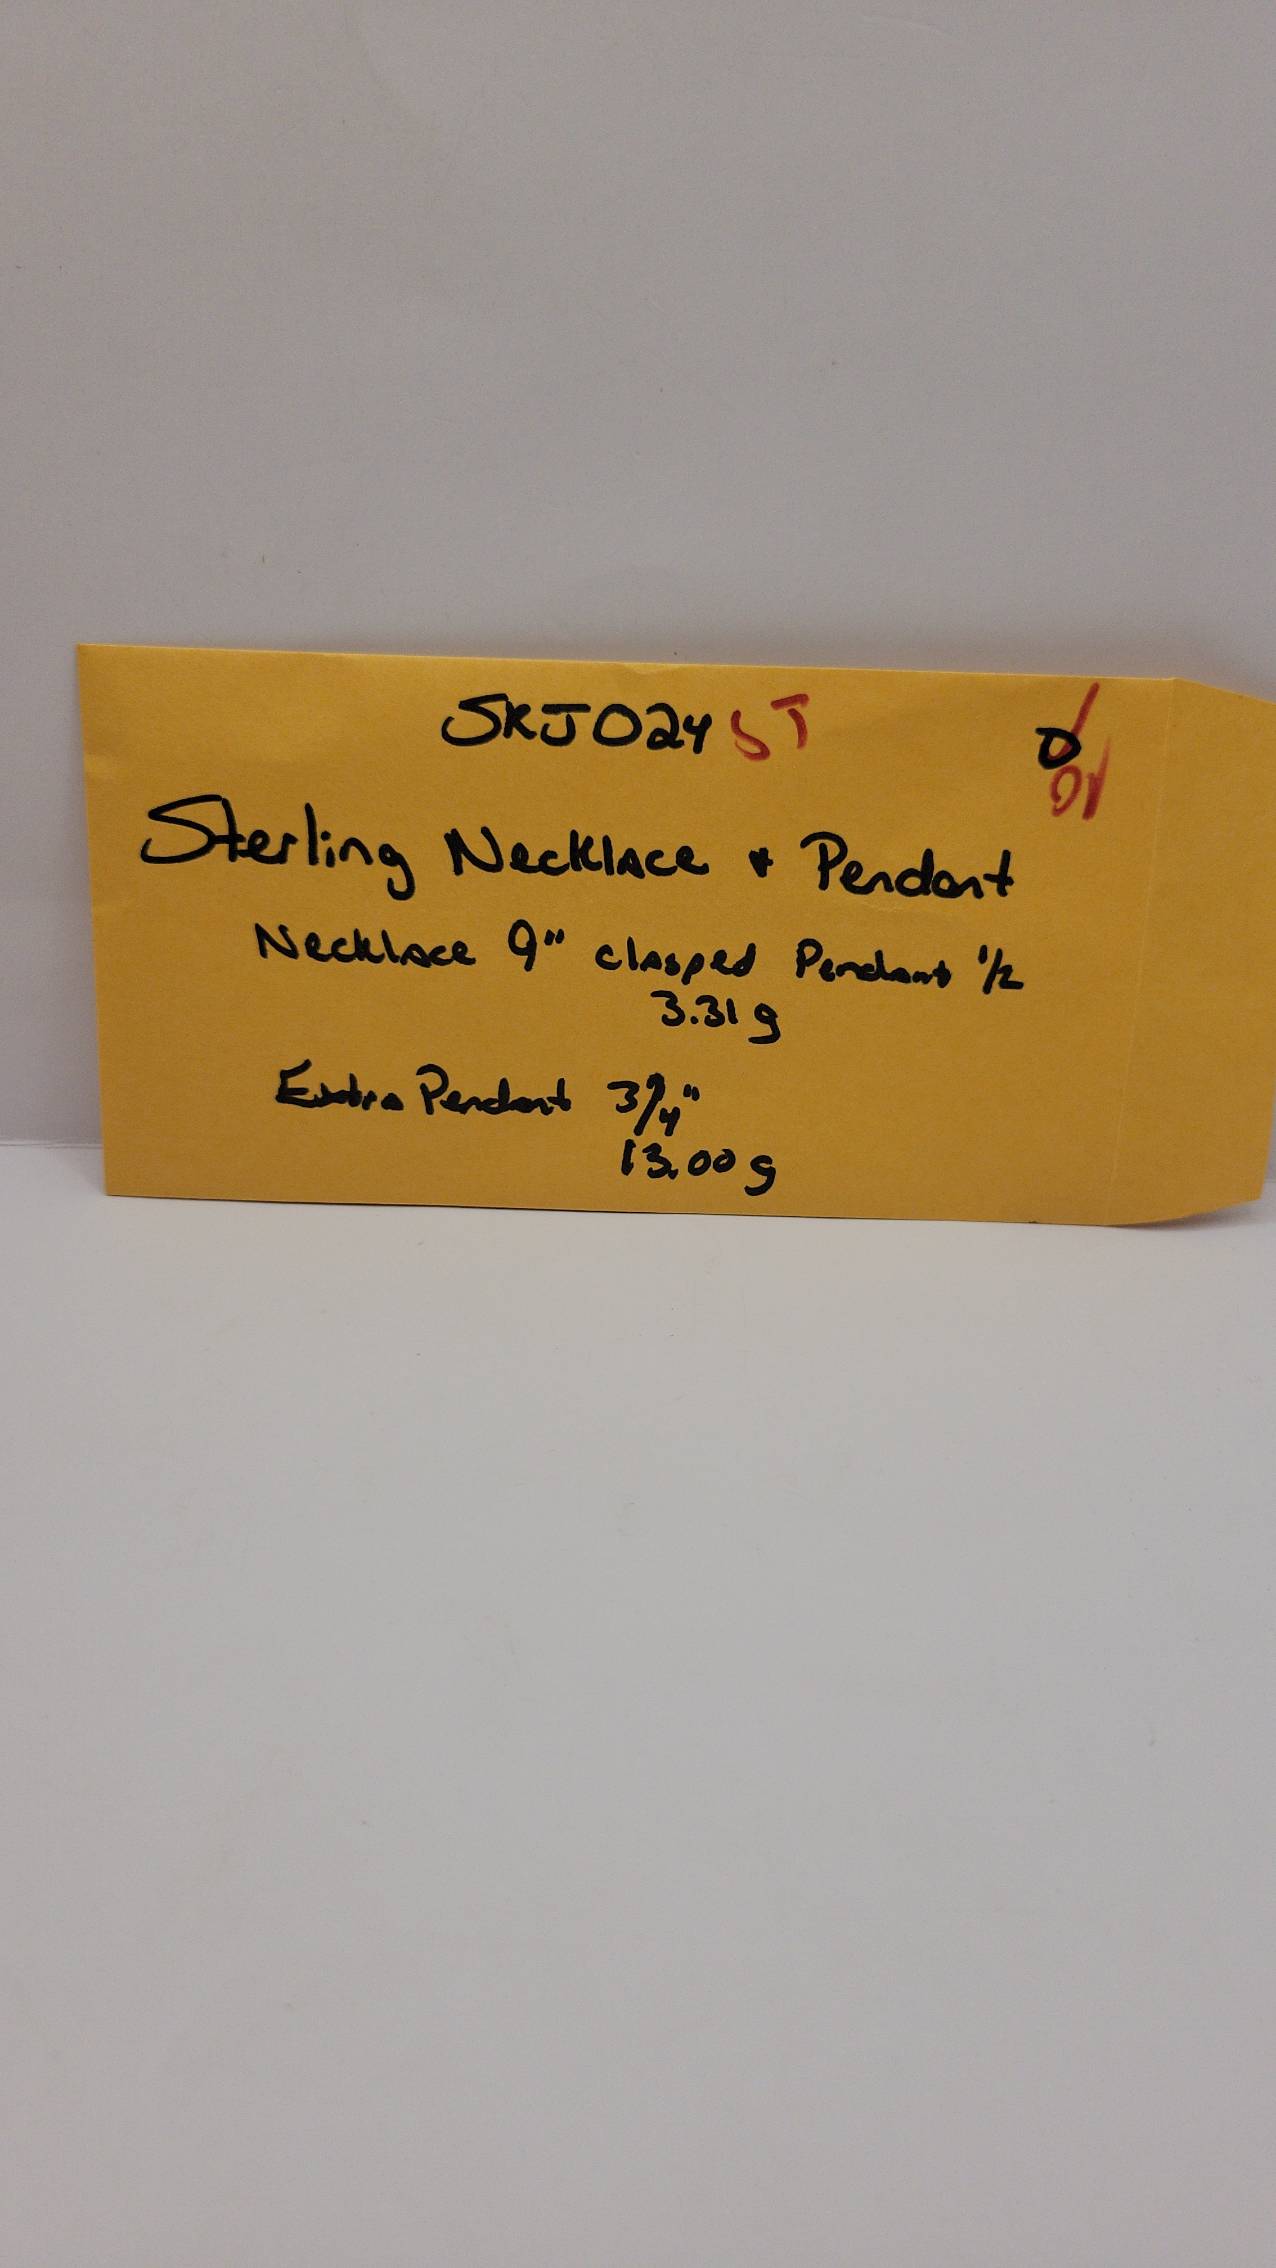 SKJ024 ST
Sterling Necklace & Pendant
Necklace 9" clasped Pendant 1/2
3.31 g
Extra Pendant 3/4"
13.00 g